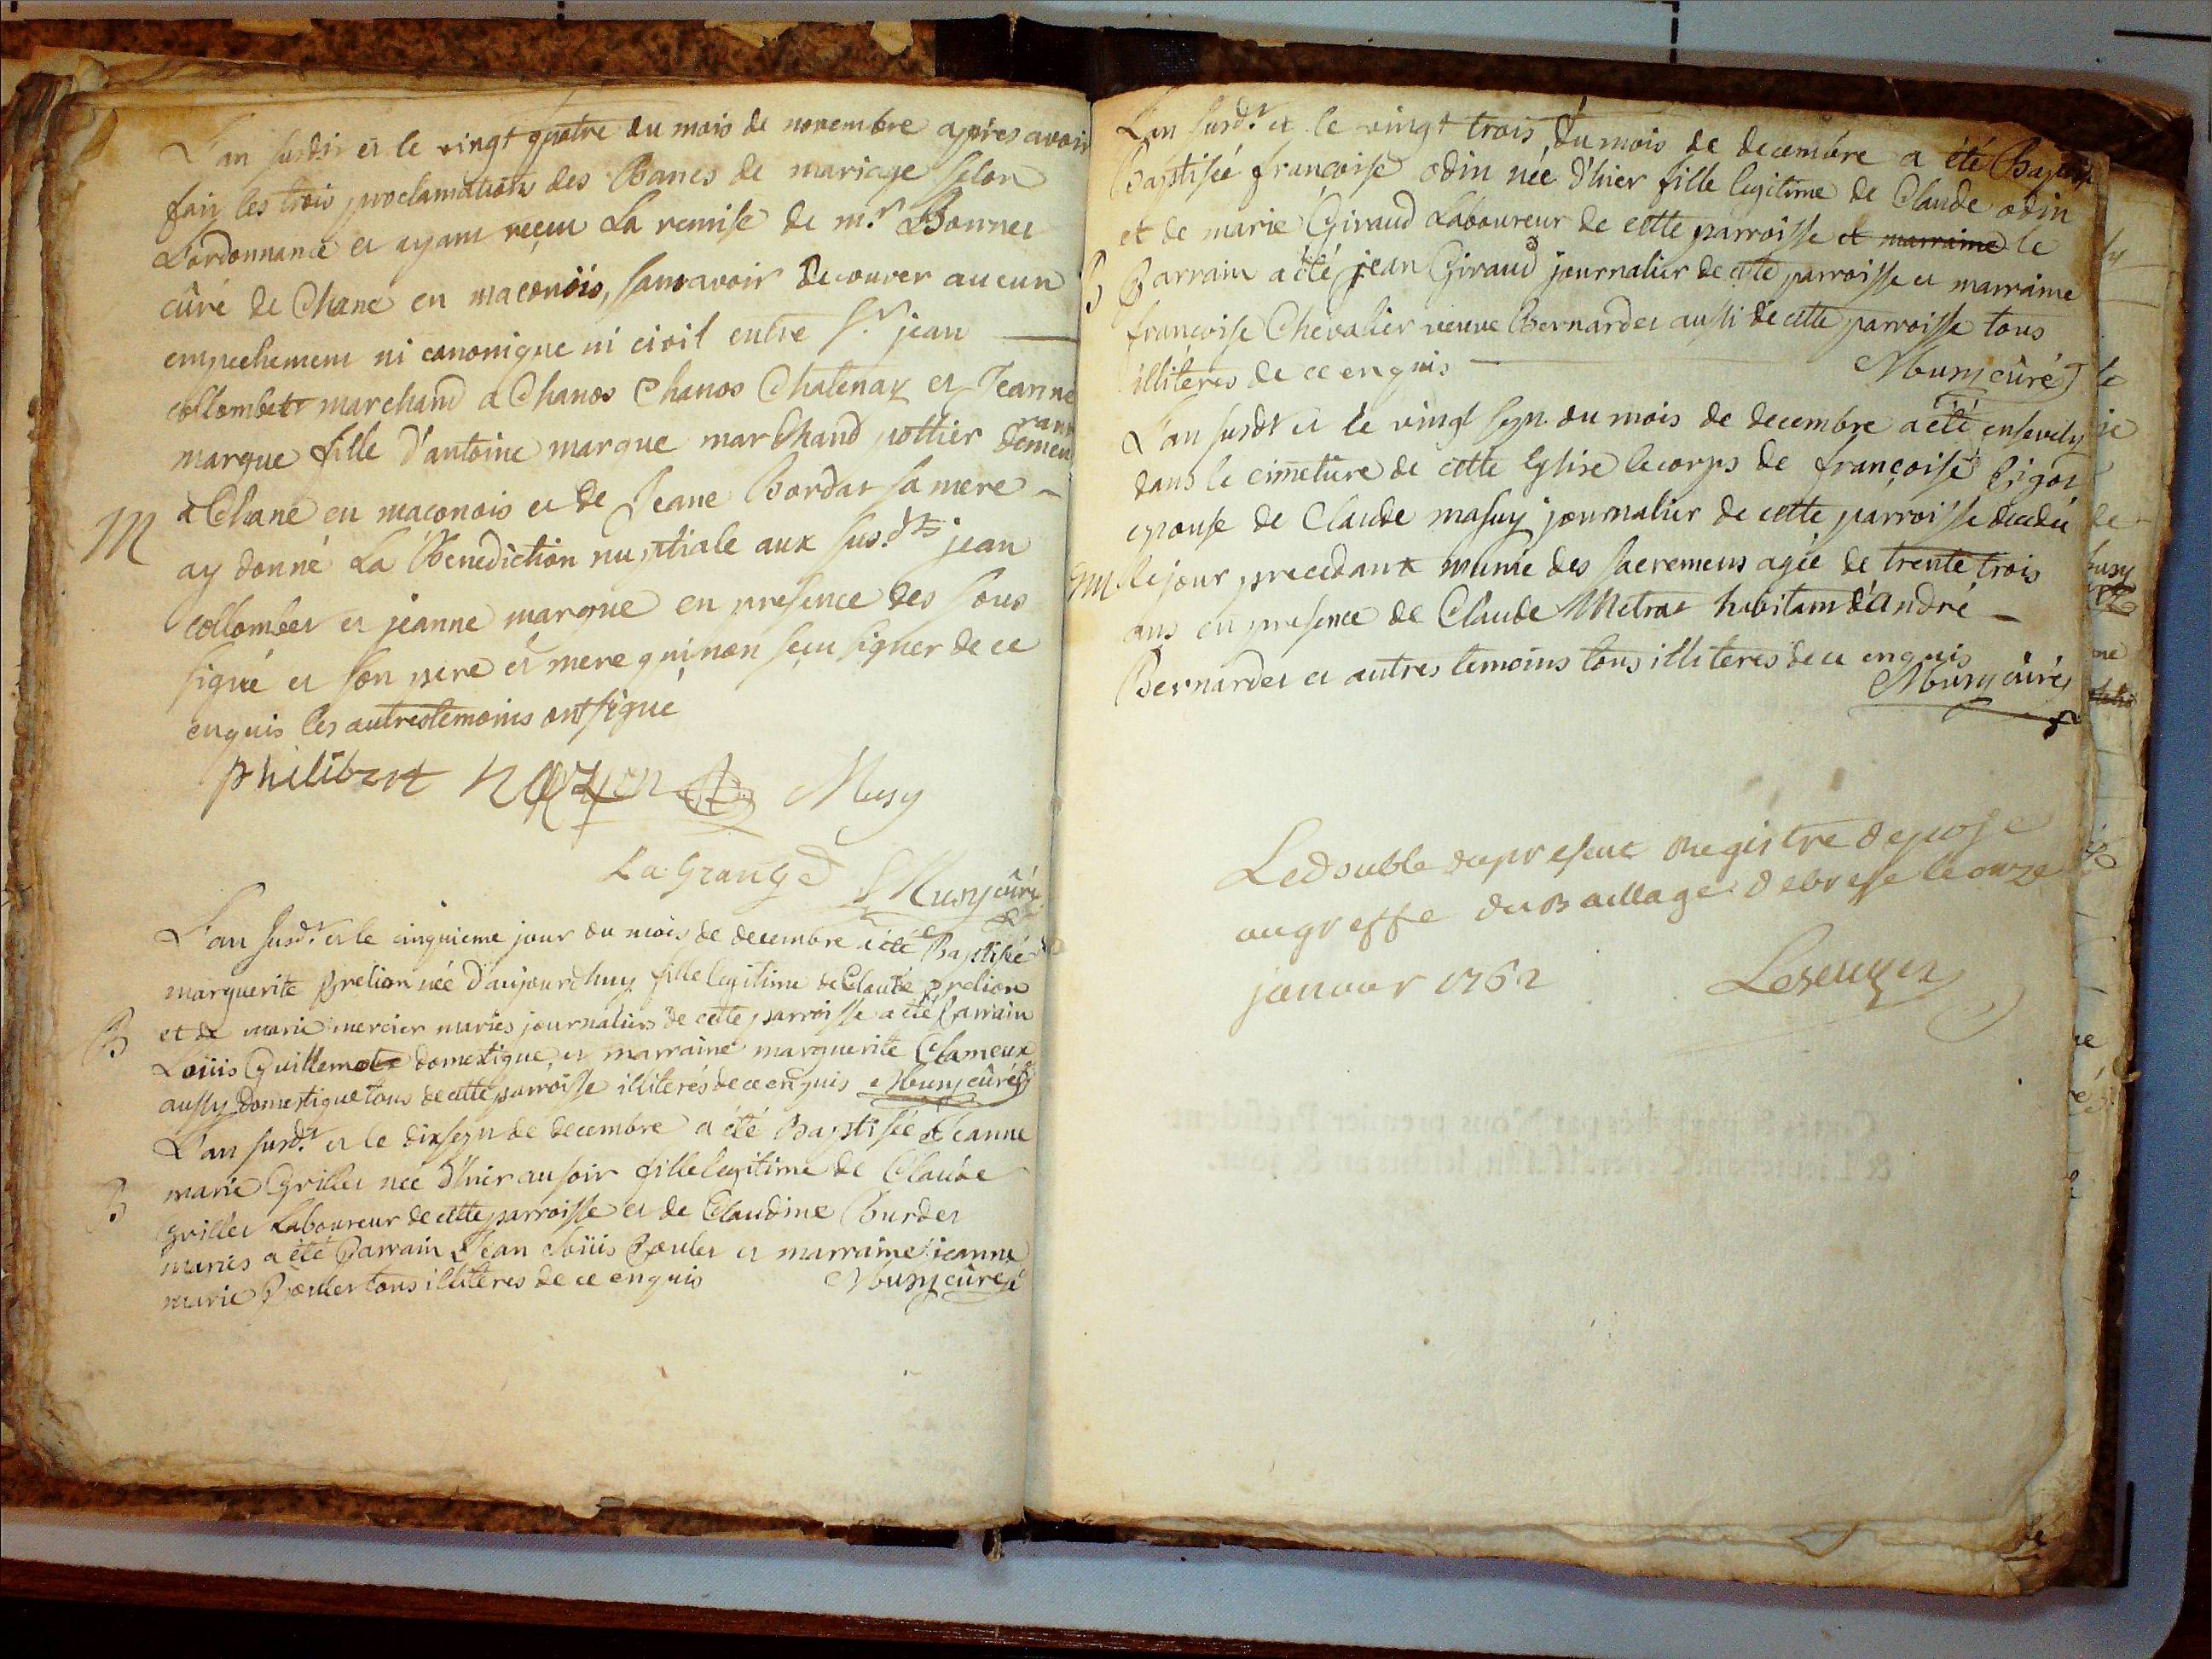 L'an susdit et le vingt quatre du mois de novembre apres avoir
fait les trois proclamations des Bancs de mariage selon
L'ordonnance et ayant reçeu La remise de mr. Bonnet
curé de Chane en maconois, sans avoir decouvert aucun
empechement ni canonique ni civil entre Sr. jean
collombet marchand a Chanos Chanos Chatenay et Jeanne
marque fille d'antoine marque marchand pottier demeu
rant
M
a Chane en maconois et de Jeane Bordat sa mere
ay donné La Benediction nuptiale aux susdts jean
collombet et jeanne marque en presence des sous
signé et son pere et mere qui non sceu signer de ce
enquis les autres temoins ont signé
philibert Musy
La Grange Musy curé
L'an susdt et le cinquieme jour du mois de decembre a été Baptisée
marguerite prelion née d'aujourdhuy fille legitime de Claude prelion
B
et de marie mercier mariés journaliers de cette parroisse a été Parrain
Loüis Guillemot domestique, et marraine marguerite Clameux
aussy Domestique tous de cette parroisse illiterés de ce enquis Musy curé
L'an susdt et le dixsept de decembre a été Baptisée Jeanne
marie Grillet née d'hier au soir fille legitime de Claude
B
Grillet Laboureur de cette parroisse et de Claudine Burdet
mariés a été Parrain Jean Loüis Poulet et marraine jeanne
marie Poulet tous illiteres de ce enquis Musy curé
L'an susdt et le vingt trois du mois de decembre a été Baptisé
Baptisée françoise odin née d'hier fille legitime de Claude odin
et de marie Giraud Laboureur de cette parroisse et marraine le
B
Parrain a été jean Giraud journalier de cette parroisse et marraine
françoise Chevalier veuve Bernardet aussi de cette parroisse tous
illiteres de ce enquis Musy curé
L'an susdt et le vingt sept du mois de decembre a été ensevely
dans le cimetiere de cette Eglise le corps de françoise Pigot
epouse de Claude masuy journalier de cette parroisse decedée
M
le jour precedant munie des sacremens agée de trente trois
ans en presence de Claude Metrat habitant d'André
Bernardet et autres temoins tous illiteres de ce enquis
Musy curé
Le double du present Registre deposé
au greffe du Baillage de bresse le onze
janvier 1762